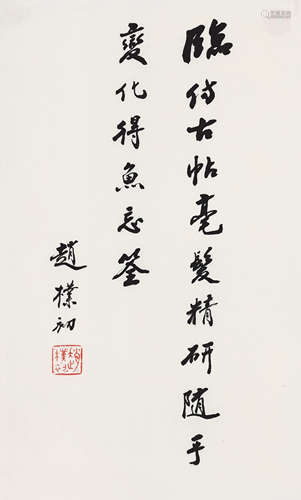 臨仿古帖毫髮精研随手
變化得魚忘筌
趙樸初